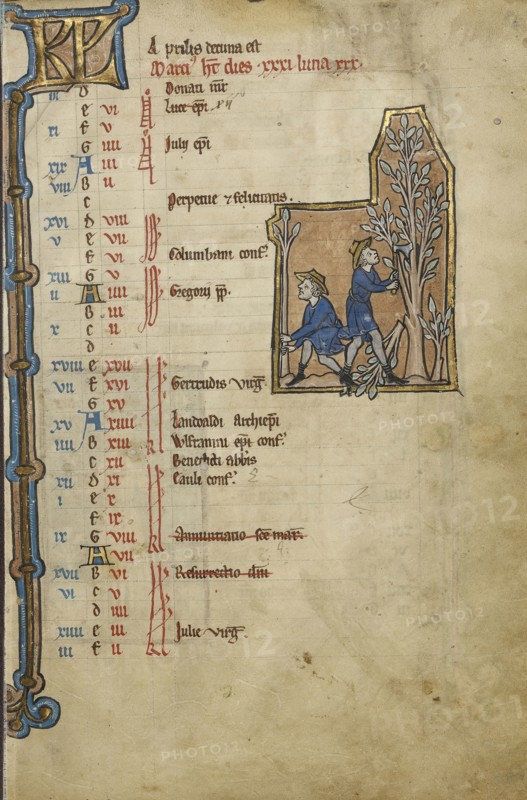 KL
A prilis decima est
Marci' ht dies .xxxi luna xxx.
d Donati mr
e vi Luce epi
xi f v
G iiii July epi
xix A iii
viii B ii
C Perpetue ⁊ felicitatis.
xvi d viii
v e vii
f vi Columbani conf.
xiii G v
ii A iiii Gregorij pp.
B iii
x C ii
d
xviii e xvii
vii f xvi Gertrudis virg.
G xv
xv A xiiii Landoaldi archiepi
iiii B xiii Wlframni epi conf.
c xii Benedicti abbis
xii d xi Pauli conf.
i e x
f ix
ix G viii Annuntiatio sce mar.
A vii
xvii B vi Resurrectio dni
vi c v
d iiii
xiiii e iii Julie virg.
iii f ii
PHOTO12